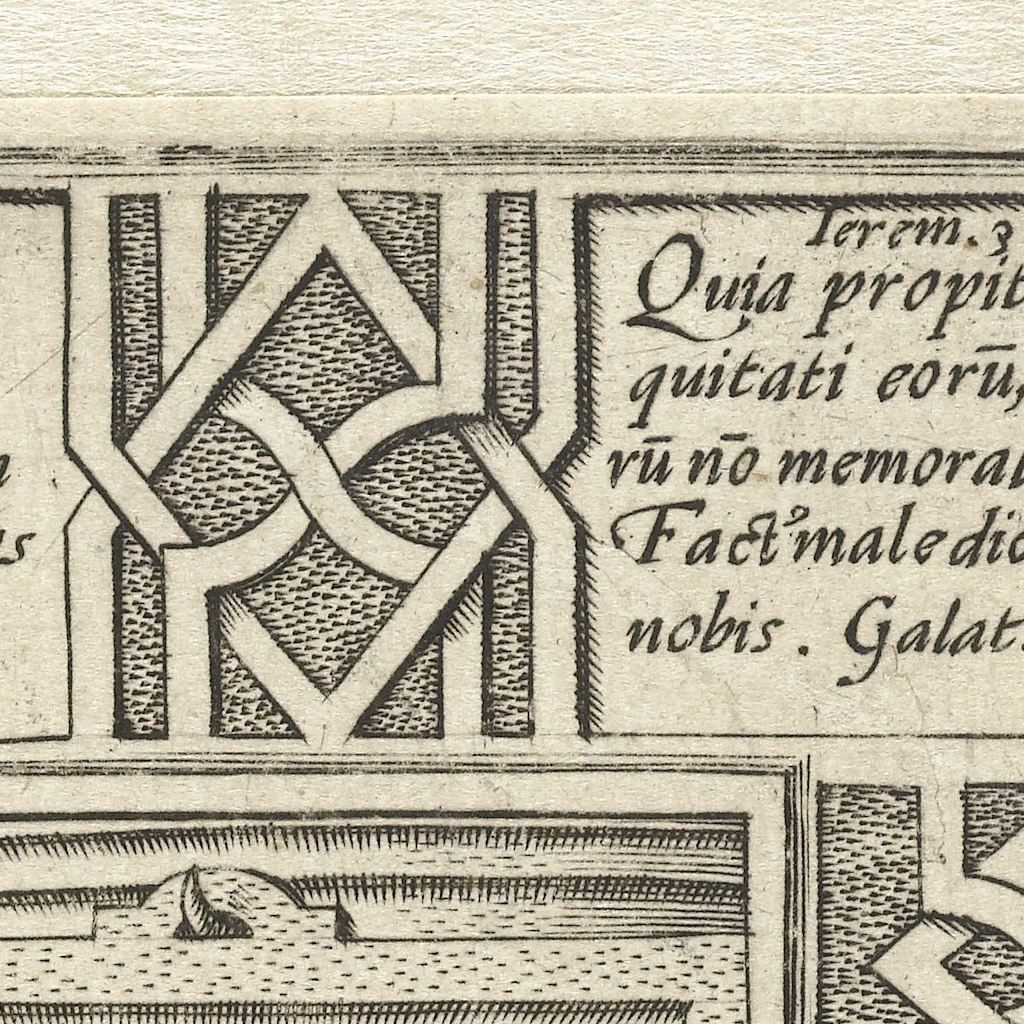 Ierem. 3
Quia propit
quitati eorū,
rū nō memorab
Fact9 maledic
nobis. Galat.
us